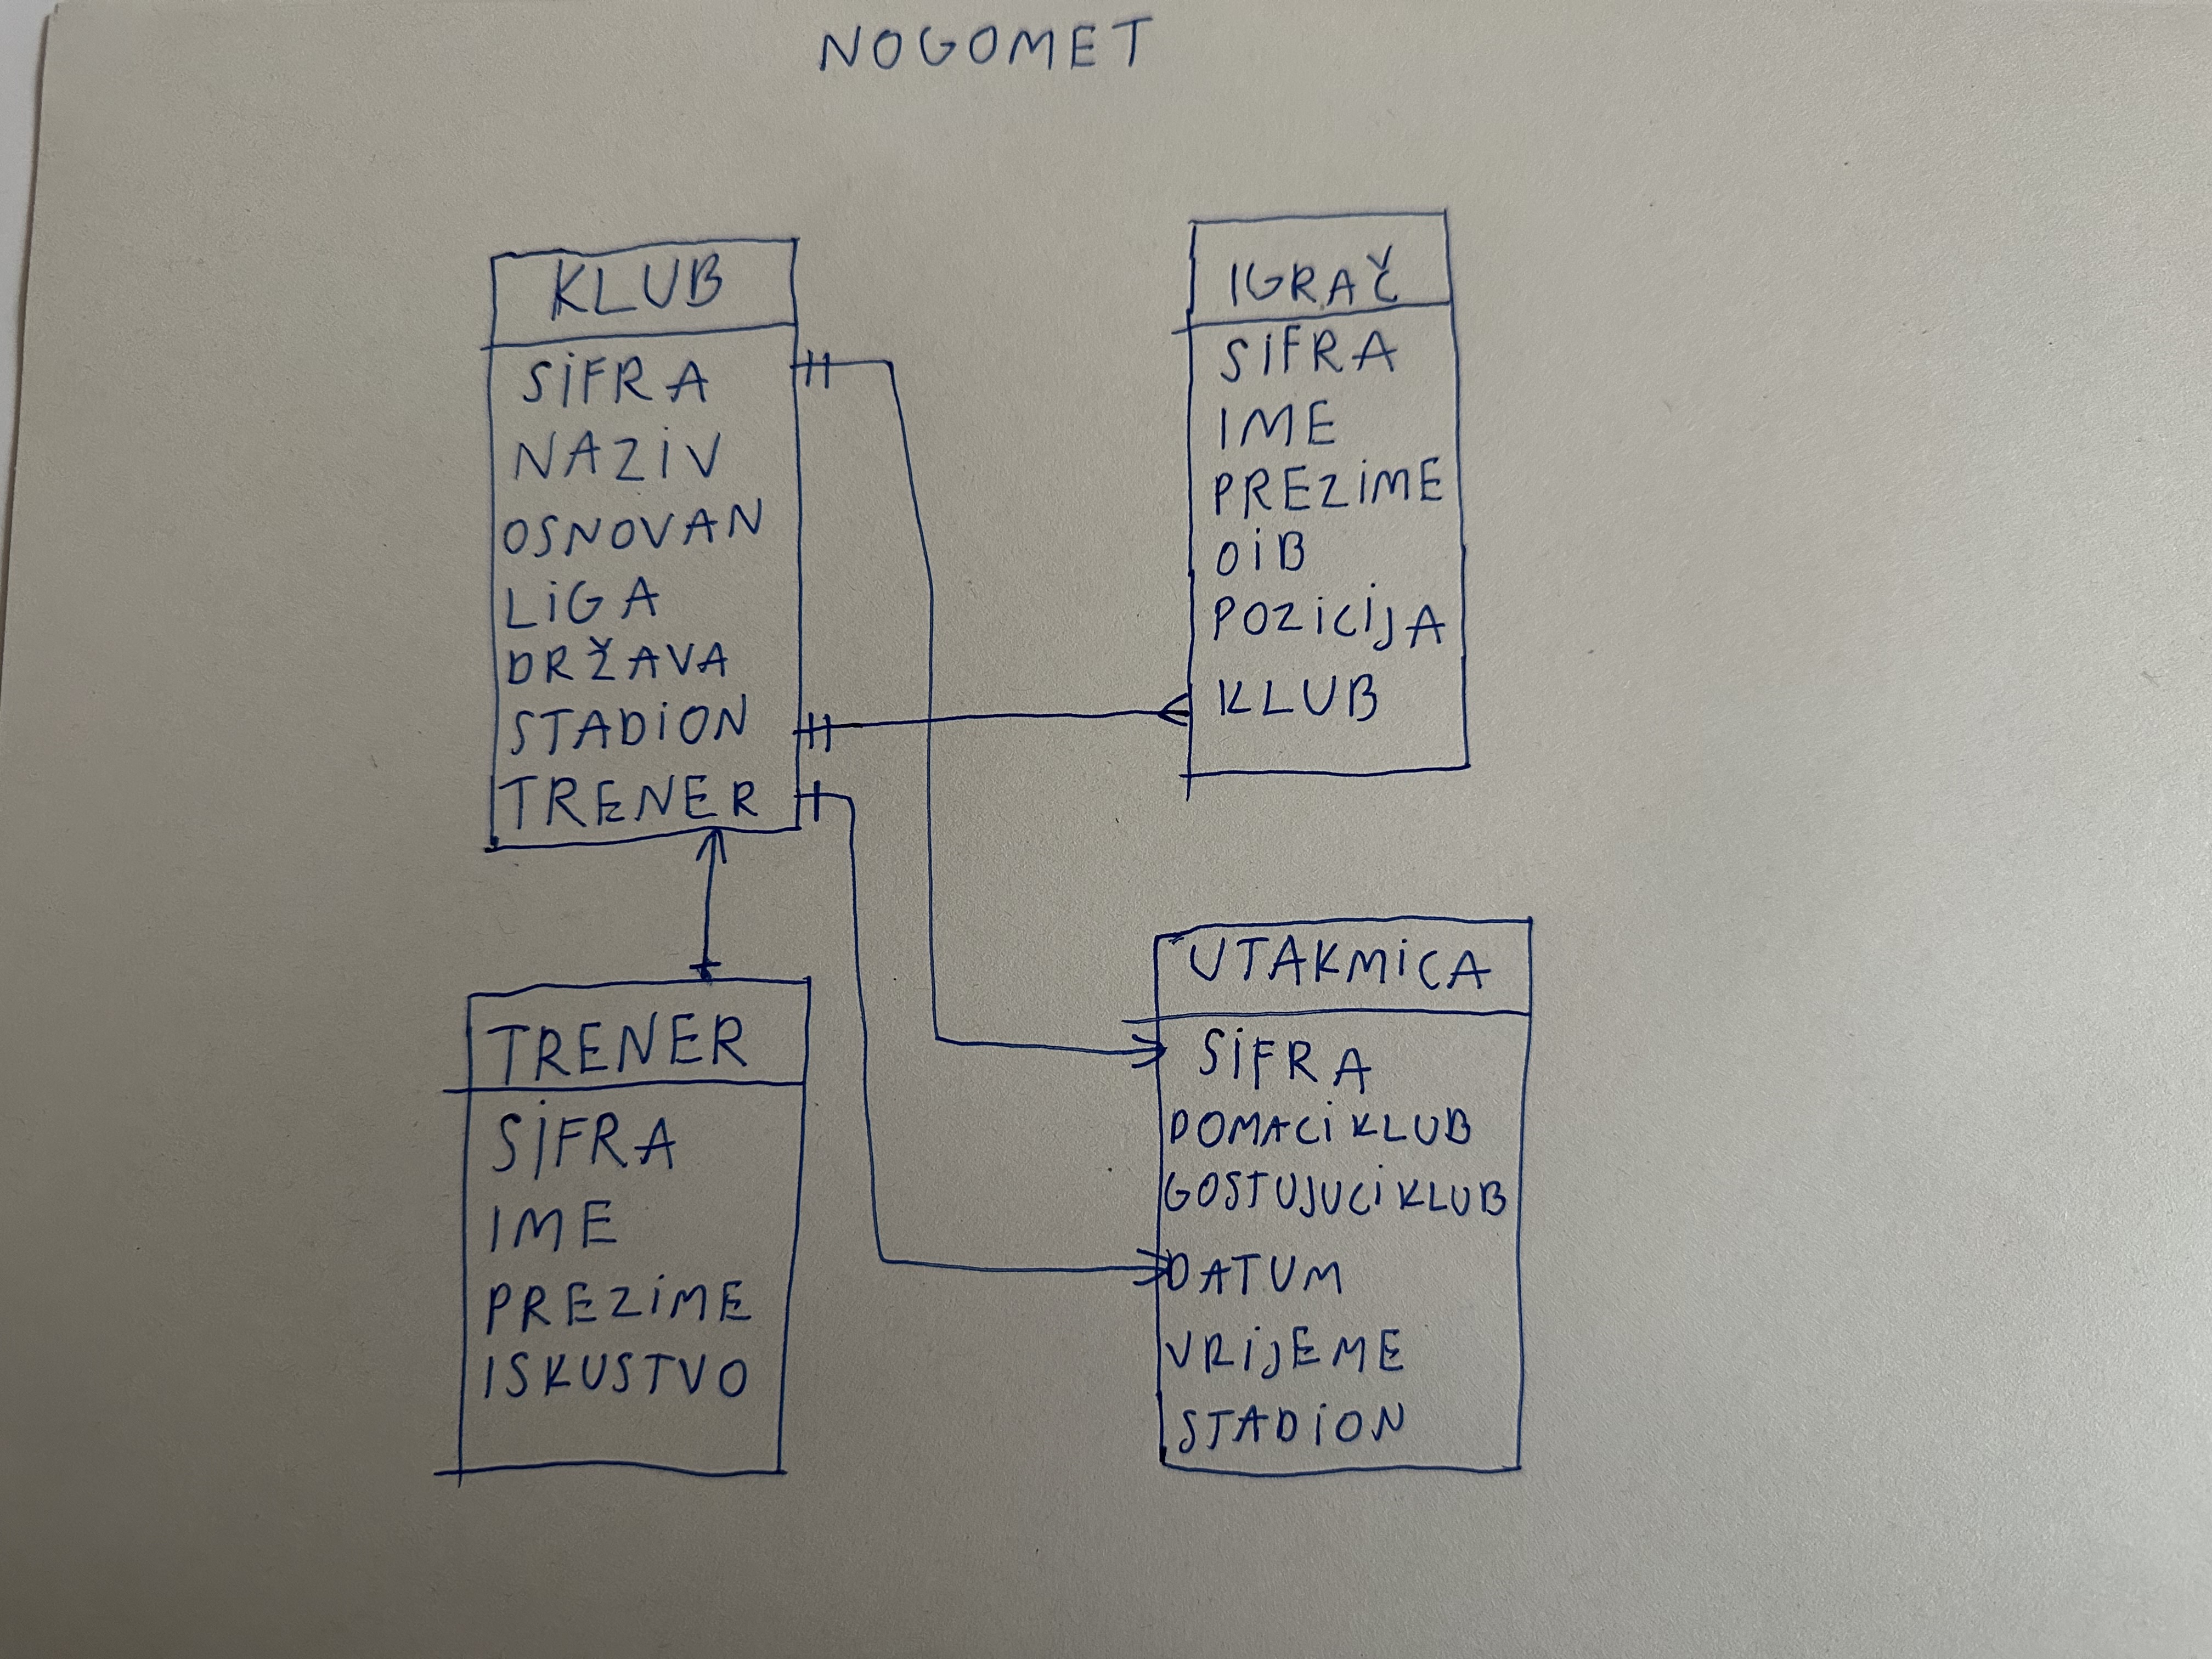 NOGOMET
KLUB
SIFRA
NAZIV
OSNOVAN
LIGA
DRŽAVA
STADION
TRENER
IGRAČ
SIFRA
IME
PREZIME
OIB
POZICIJA
KLUB
TRENER
SIFRA
IME
PREZIME
ISKUSTVO
UTAKMICA
SIFRA
DOMACIKLUB
GOSTUJUCIKLUB
DATUM
VRIJEME
STADION